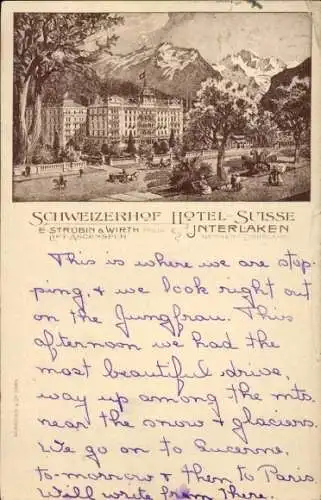 SCHWEIZERHOF HOTEL-SUISSE
E. STRÜBIN & WIRTH INTERLAKEN
LIFT-ASCENSEUR
This is where we are stop-
ping, & we look right out
on the Jungfrau. This
afternoon we had the
most beautiful drive,
way up among the mts.
near the snow & glaciers.
We go on to Lucerne,
to-morrow & then to Paris.
Will write from there.